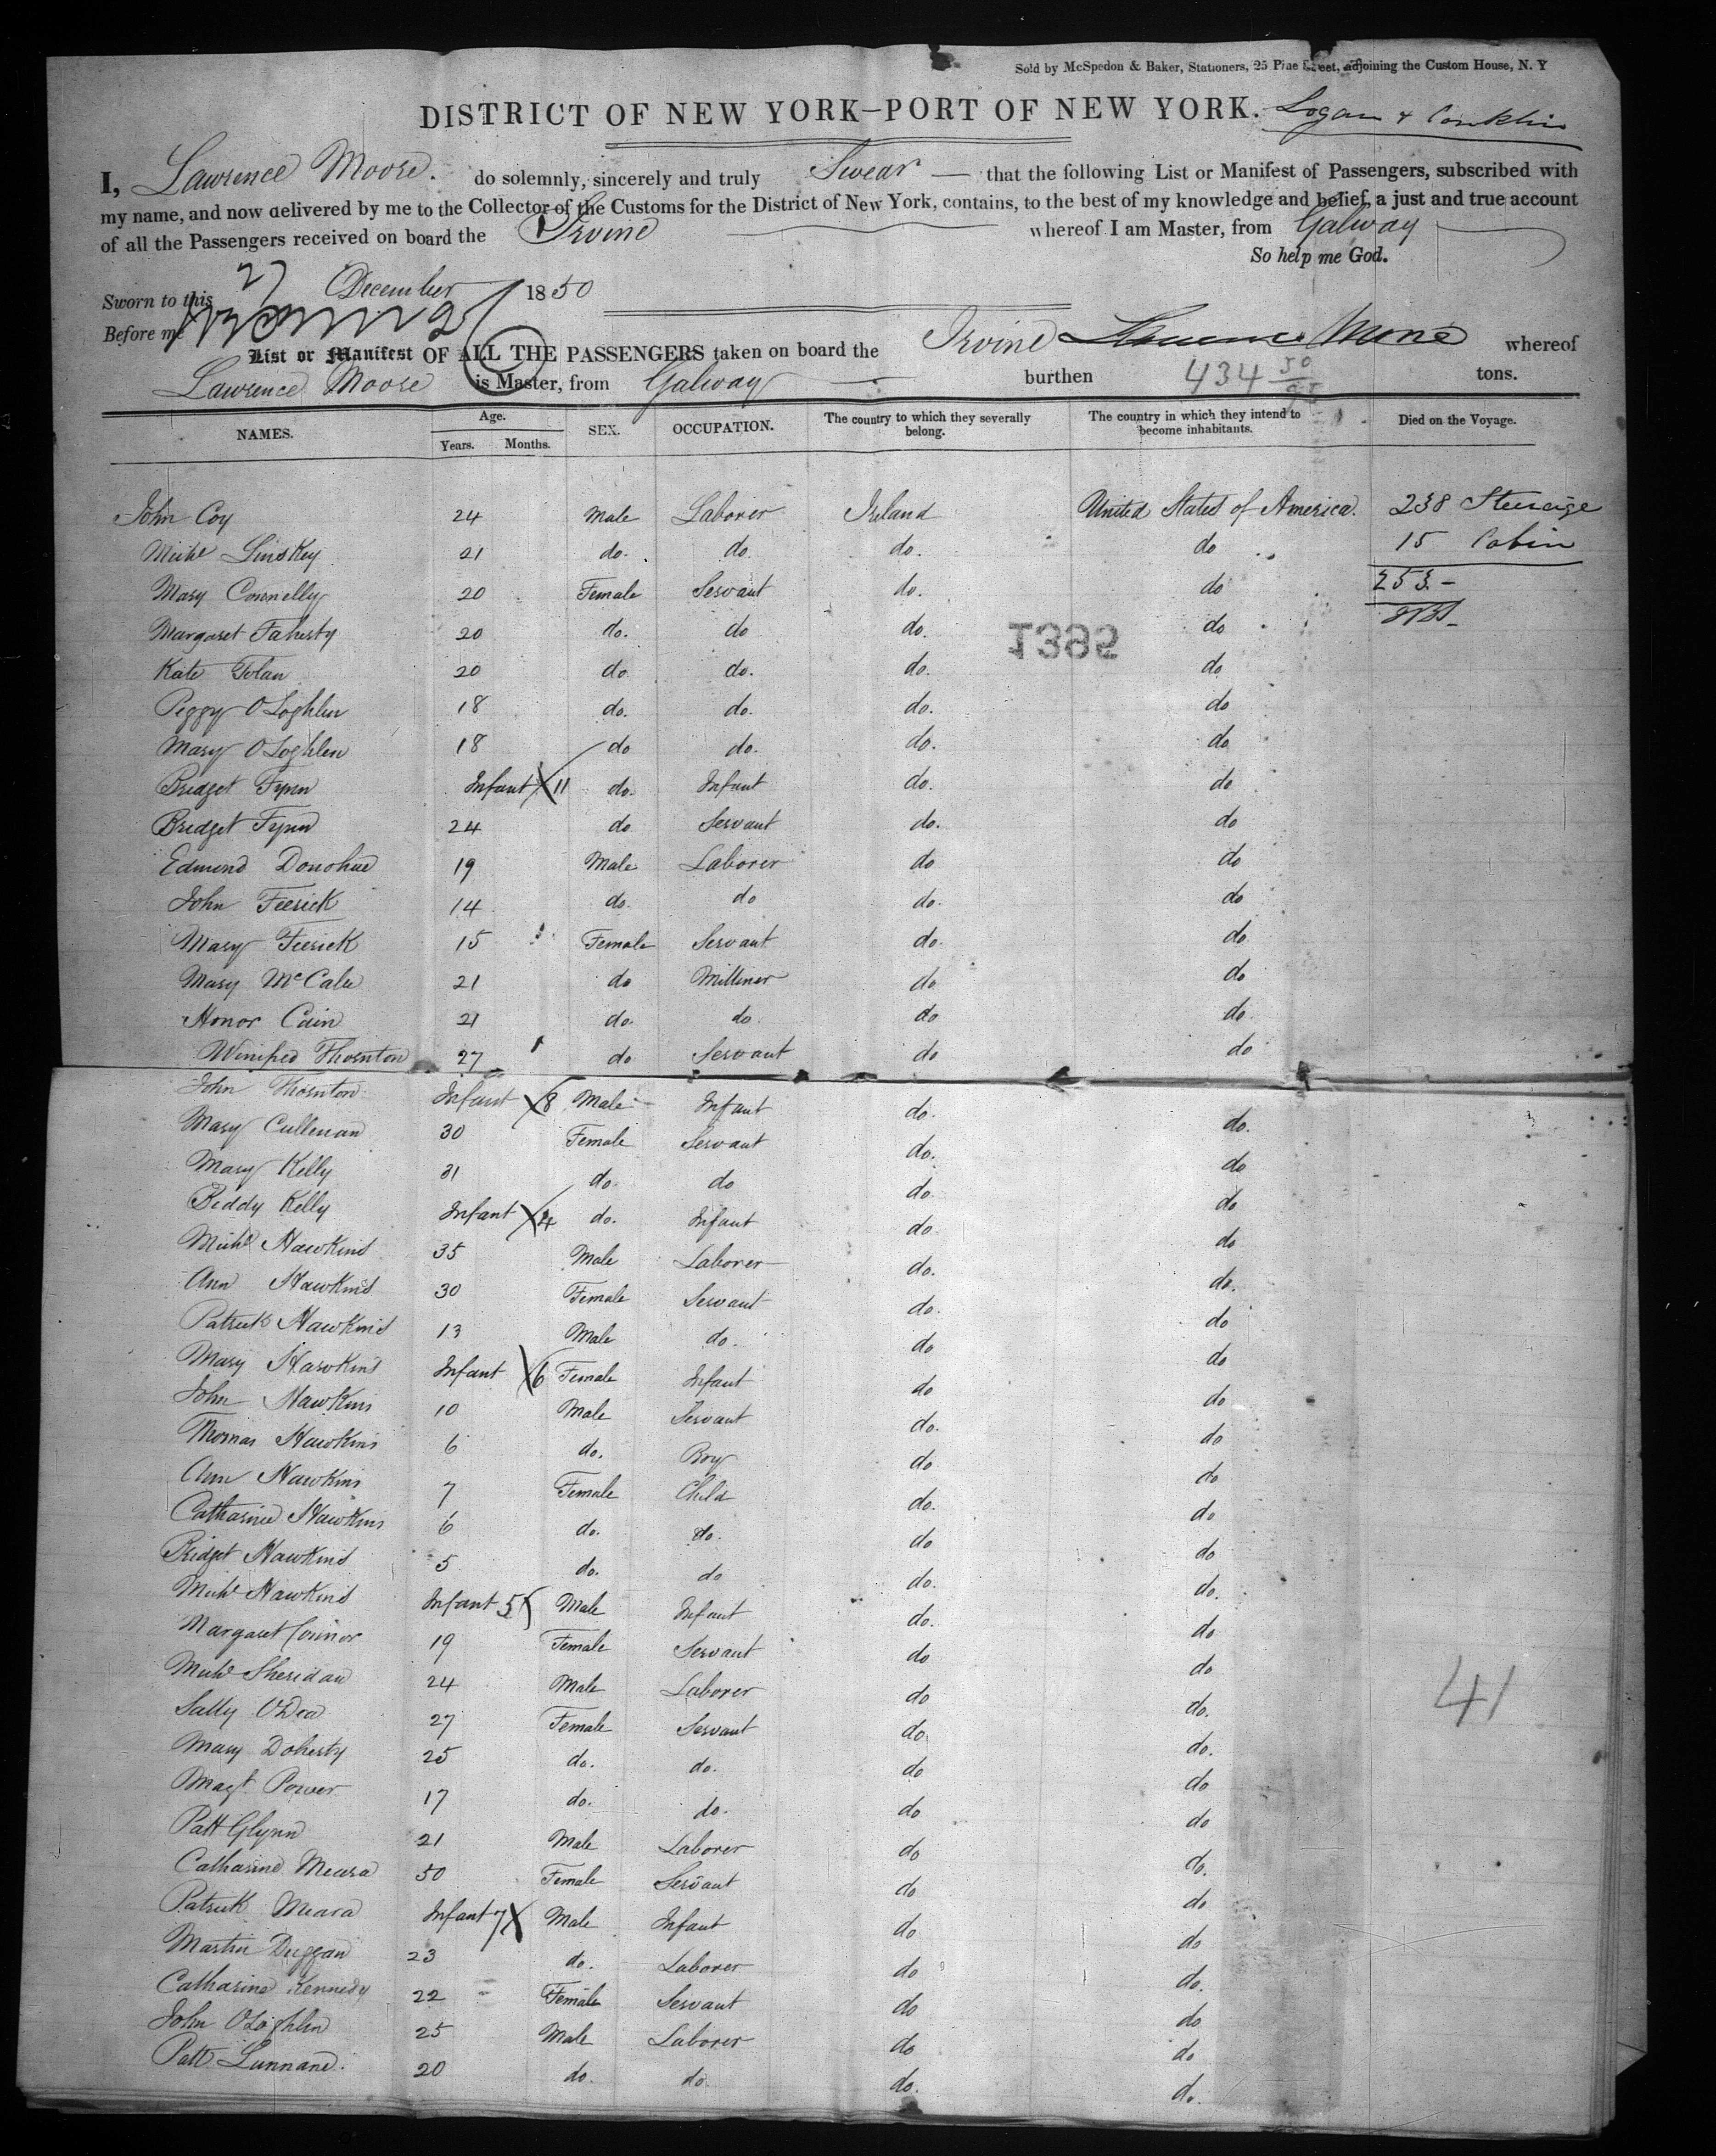 Sold by McSpedon & Baker, Stationers, 25 Pine Street, adjoining the Custom House, N. Y
DISTRICT OF NEW YORK–PORT OF NEW YORK. Logan & Conklin
I, Lawrence Moore. do solemnly, sincerely and truly Swear — that the following List or Manifest of Passengers, subscribed with
my name, and now delivered by me to the Collector of the Customs for the District of New York, contains, to the best of my knowledge and belief, a just and true account
of all the Passengers received on board the Irvine whereof I am Master, from Galway
So help me God.
Sworn to this 27 December 1850
Before me
List or Manifest OF ALL THE PASSENGERS taken on board the Irvine Lawrence Moore whereof
Lawrence Moore is Master, from Galway burthen 434 50/95 tons.
NAMES. Age. Years. Months. SEX. OCCUPATION. The country to which they severally belong. The country in which they intend to become inhabitants. Died on the Voyage.
John Coy 24 Male Laborer Ireland United States of America. 238 Steerage
Michl Linskey 21 do. do. do. do 15 Cabin
Mary Connelly 20 Female Servant do. do 253.-
Margaret Faherty 20 do. do do. do
1395
Kate Folan 20 do do. do. do
Peggy O'Loghlen 18 do. do. do. do
Mary O'Loghlen 18 do do. do. do
Bridget Fynn Infant X 11 do. Infant do. do
Bridget Fynn 24 do Servant do. do
Edmond Donohue 19 Male Laborer do do
John Feerick 14 do. do do. do
Mary Feerick 15 Female Servant do. do
Mary McCabe 21 do Milliner do do
Honor Cain 21 do. do. do do
Winifred Thornton 27 do Servant do do
John Thornton Infant X 8 Male Infant do. do.
Mary Cullenan 30 Female Servant do. do
Mary Kelly 31 do. do do do
Biddy Kelly Infant X 4 do. Infant do do
Michl Hawkins 35 Male Laborer do. do.
Ann Hawkins 30 Female Servant do. do
Patrick Hawkins 13 Male do. do do
Mary Hawkins Infant X 6 Female Infant do do
John Hawkins 10 Male Servant do. do
Thomas Hawkins 6 do. Boy do do
Ann Hawkins 7 Female Child do. do
Catharine Hawkins 6 do. do. do do
Bridget Hawkins 5 do. do do. do.
Michl Hawkins Infant 5 X Male Infant do. do
Margaret Connor 19 Female Servant do do
Michl Sheridan 24 Male Laborer do do.
Sally O'Dea 27 Female Servant do do.
41
Mary Doherty 25 do. do. do do
Magt. Power 17 do. do. do do
Patt Glynn 21 Male Laborer do do.
Catharine Meara 50 Female Servant do do
Patrick Meara Infant 7 X Male Infant do do
Martin Duggan 23 do. Laborer do do.
Catharine Kennedy 22 Female Servant do do
John O'Loghlen 25 Male Laborer do do
Patt Lunnane. 20 do. do. do. do.